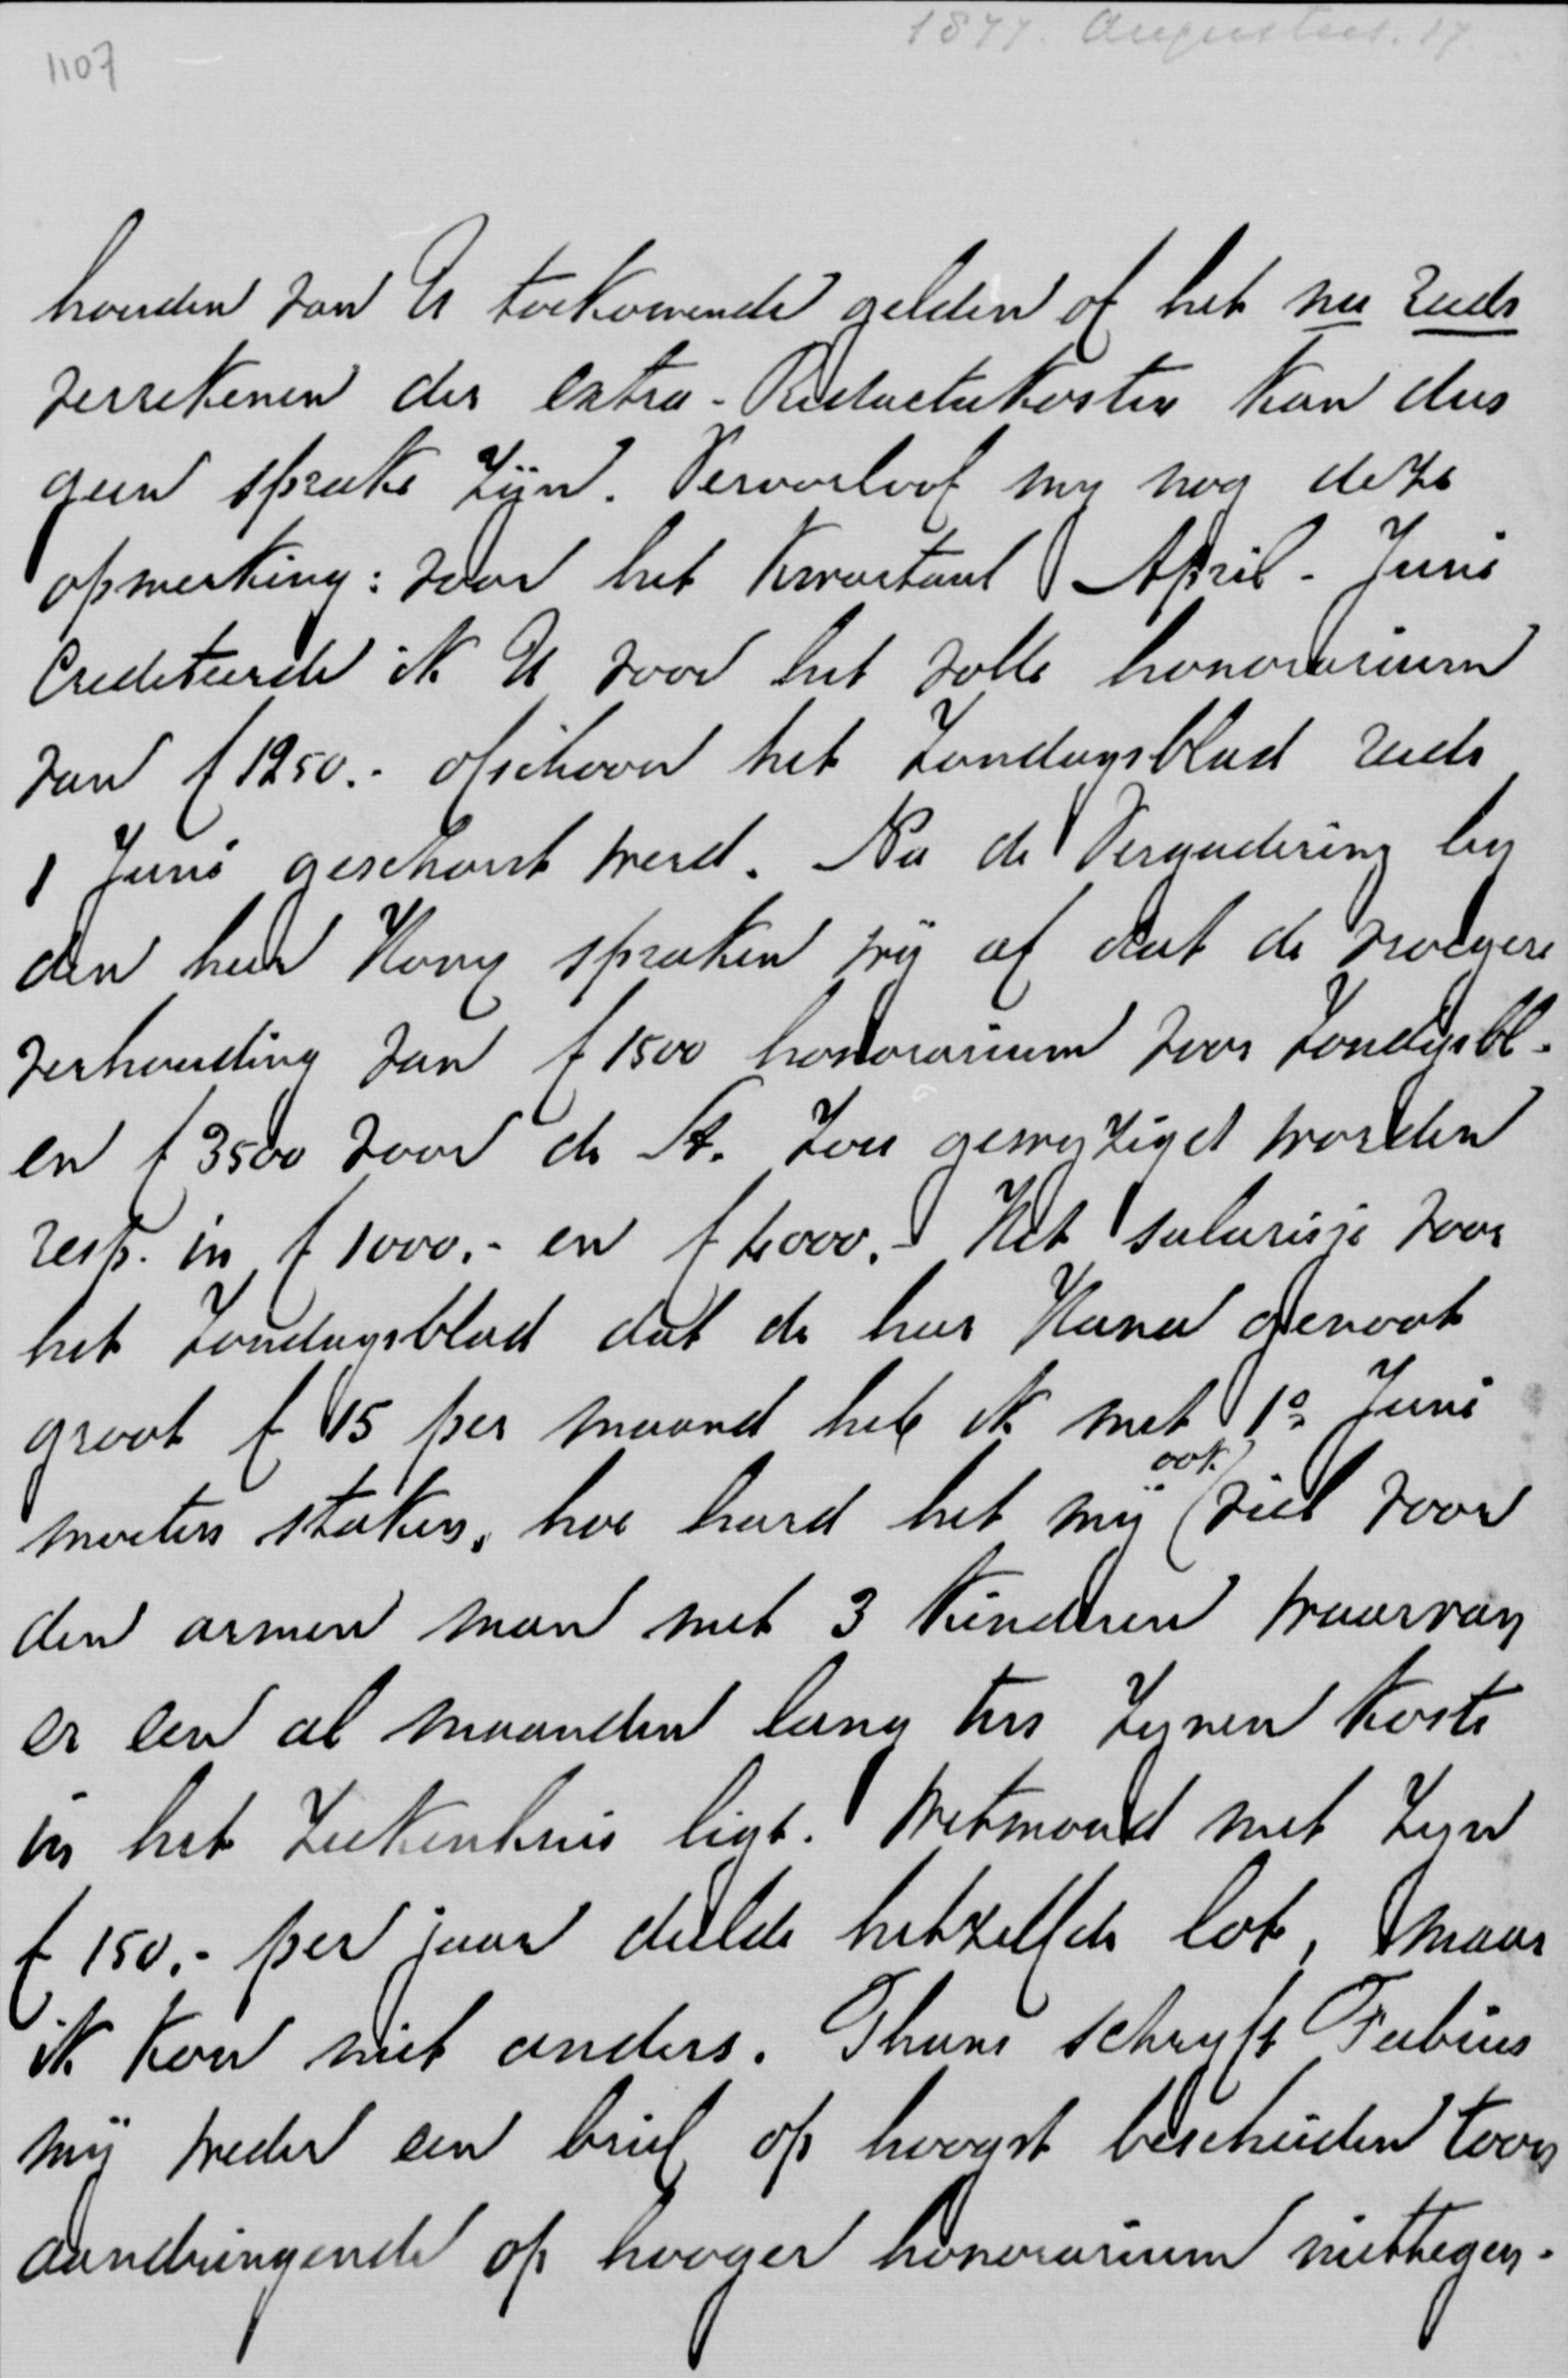 1107
1877. Augustus. 17
houden van U toekomende gelden of het nu reeds
verrekenen der extra-Redactiekosten kan dus
geen sprake zijn. Veroorloof my nog deze
opmerking: voor het Kwartaal April - Juni
Crediteerde ik U voor het volle honorarium
van f 1250.- ofschoon het Zondagsblad reeds
1 Juni geschorst werd. Na de Vergadering by
den heer Hovy spraken wij af dat de vroegere
verhouding van f 1500 honorarium voor Zondagsbl.
en f 3500 voor de St. zou gewyzigd worden
resp. in f 1000.- en f 4000.- Het salarisje voor
het Zondagsblad dat de heer Kana genoot
groot f 15 per maand heb ik met 1o Juni
moeten staken, hoe hard het mij (ook) viel voor
den armen man met 3 kinderen waarvan
er een al maanden lang ten zynen koste
in het Ziekenhuis ligt. Wetmoad met zyn
f 150.- per jaar deelde hetzelfde lot, maar
ik kon niet anders. Thans schryft Fabius
mij weder een brief op hoogst bescheiden toon
aandringende op hooger honorarium niettegen-